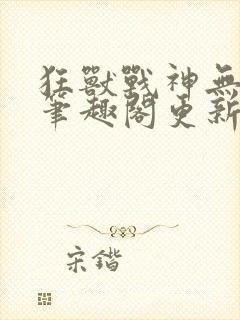 狂獸戰神無
筆趣閣更新
宋鍇